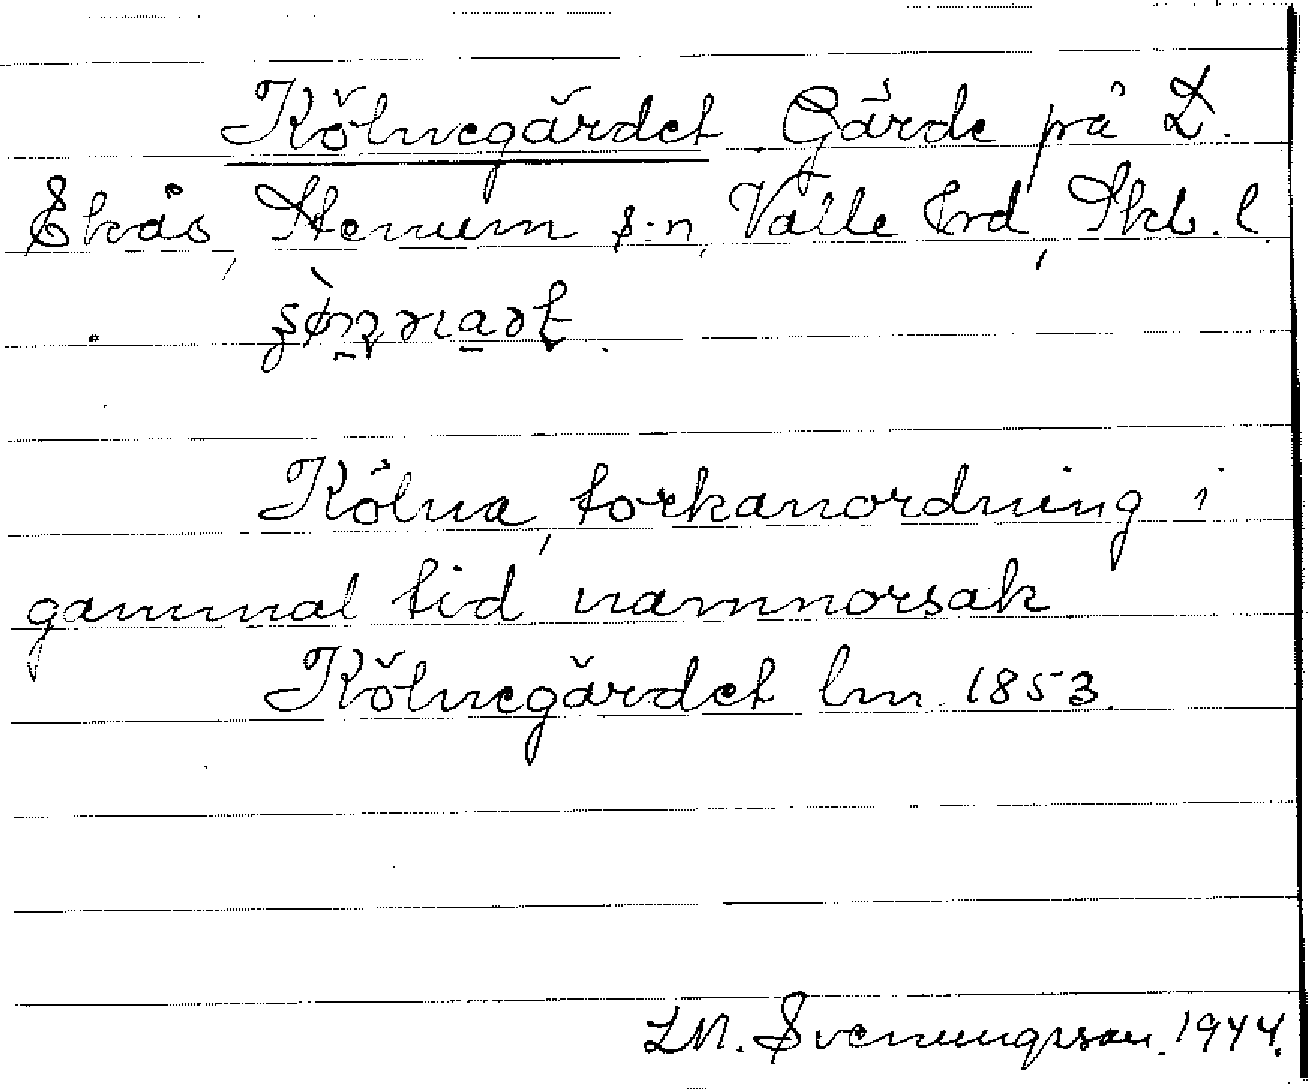 Kölnegärdet Gärde på L.
Ekås, Stenum s-n, Valle hrd, Skb. l.
Kölna, torkanordning i
gammal tid namnorsak
Kölnegärdet lm 1853.
LM. Svenungsson. 1944.